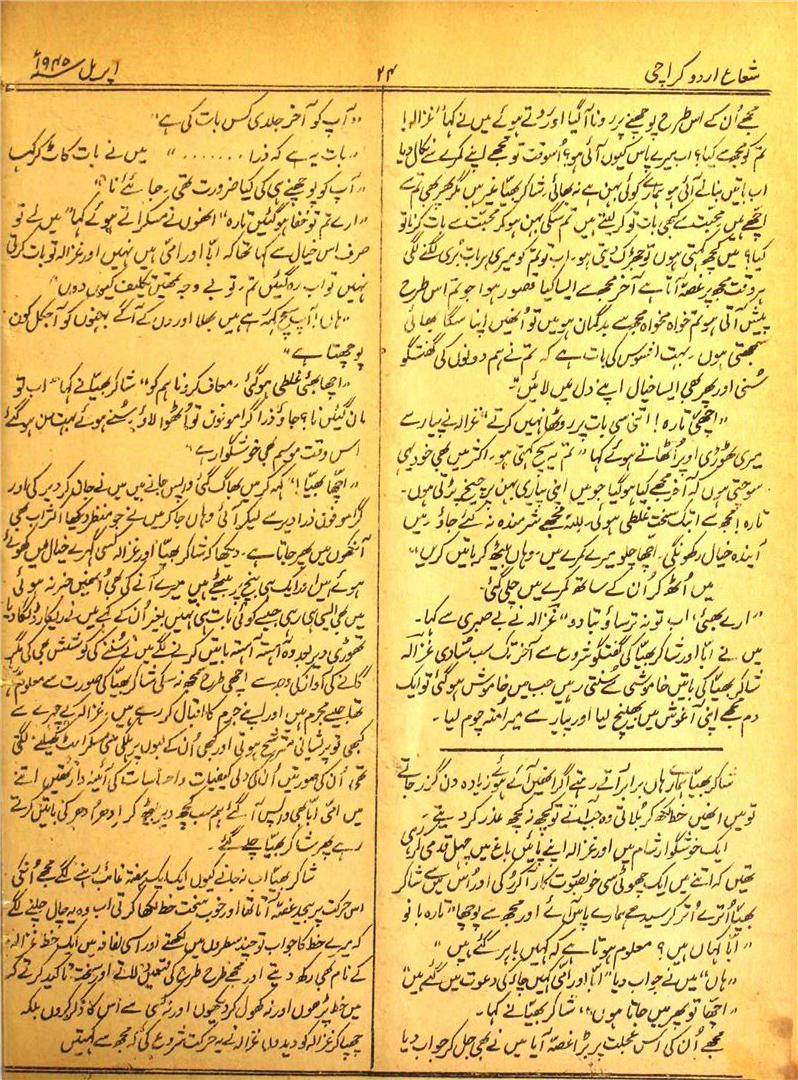 شعاع اردو کراچی
۲۴
اپریل ۱۹۴۵ء
مجھے اُن کے اس طرح پوچھنے پر رونا آ گیا اور روتے ہوئے میں نے کہا "غزالہ!
تم کو مجھ سے کیا؟ اب میرے پاس کیوں آئی ہو؟ اُسوقت تو مجھے اپنے کمرے سے نکال دیا
اب باتیں بنانے آئی ہو ہمارے کوئی بہن ہے نہ بھائی، شاکر بھیّا غیر ہیں مگر پھر بھی تم سے
اچھے ہیں محبت سے کبھی بات تو کر لیتے ہیں تم سگی بہن ہو کر محبت سے بات کرنا تو
کیا؟ میں کچھ کہتی ہوں تو جھڑک دیتی ہو۔ اب تو تم کو میری ہر بات بُری لگنے لگی
ہر وقت مجھ پر غصہ آتا ہے آخر مجھ سے ایسا کیا قصور ہوا جو تم اس طرح
پیش آتی ہو تم خواہ مخواہ مجھ سے بدگمان ہو میں تو اُنھیں اپنا سگا بھائی
سمجھتی ہوں۔ بہت افسوس کی بات ہے کہ تم نے ہم دونوں کی گفتگو
سُنی اور پھر بھی ایسا خیال اپنے دل میں لائیں"۔
"اچھی تارہ! اتنی سی بات پر روٹھا نہیں کرتے" غزالہ نے پیار سے
میری ٹھوڑی اوپر اُٹھاتے ہوئے کہا "تم سچ کہتی ہو۔ اکثر میں بھی خود ہی
سوچتی ہوں کہ آخر مجھے کیا ہو گیا جو میں اپنی پیاری بہن پر چیخ پڑتی ہوں۔
تارہ! مجھ سے ایک سخت غلطی ہوئی۔ للہ مجھے شرمندہ نہ کئے جاؤ۔ میں
آیندہ خیال رکھونگی۔ اچھا چلو میرے کمرے میں۔ وہاں بیٹھ کر باتیں کریں"۔
میں اُٹھ کر اُن کے ساتھ کمرے میں چلی گئی۔
"ارے بھئی، اب تو نہ ترساؤ بتا دو" غزالہ نے بے صبری سے کہا۔
میں نے ابّا اور شاکر بھیّا کی گفتگو شروع سے آخر تک سب سُنا دی غزالہ
شاکر بھیّا کی باتیں خاموشی سے سُنتی رہیں جب میں خاموش ہو گئی تو ایک
دم مجھے اپنی آغوش میں بھینچ لیا اور پیار سے میرا منہ چوم لیا۔
شاکر بھیّا ہمارے ہاں برابر آتے رہتے اگر انھیں آئے ہوئے زیادہ دن گزر جاتے
تو میں انھیں خط لکھ کر بلاتی وہ جب آتے تو کچھ نہ کچھ عذر کر دیتے۔
ایک خوشگوار شام میں اور غزالہ اپنے پائیں باغ میں چہل قدمی کر رہی
تھیں کہ اتنے میں ایک چھوٹی سی خوبصورت کار آ کر رُکی اور اُس میں سے شاکر
بھیّا اُترے اُتر کر سیدھے ہمارے پاس آئے اور مجھ سے پوچھا "تارہ بانو
ابّا کہاں ہیں؟ معلوم ہوتا ہے کہ کہیں باہر گئے ہیں"
"ہاں" میں نے جواب دیا "ابّا اور امّی کہیں چاء کی دعوت میں گئے ہیں"
"اچھا تو پھر میں جاتا ہوں"، شاکر بھیّا نے کہا۔
مجھے اُن کی اس عجلت پر بڑا غصہ آیا میں نے بھی جل کر جواب دیا
"آپ کو آخر جلدی کس بات کی ہے"
"بات یہ ہے کہ ذرا . . . . . . . ." میں نے بات کاٹ کر کہا
"آپ کو پوچھنے ہی کی کیا ضرورت تھی۔ جائیے نا"
"ارے تم تو خفا ہو گئیں تارہ" انھوں نے مسکراتے ہوئے کہا "میں نے تو
صرف اس خیال سے کہا تھا کہ ابّا اور امّی ہیں نہیں اور غزالہ تو بات کرتی
نہیں تو اب رہ گئیں تم۔ تو بے وجہ تمھیں تکلیف کیوں دوں"
"ہاں! آپ سچ کہتے ہیں بھلا اور دن کے آگے بہنوں کو آجکل کون
پوچھتا ہے"
"اچھا بھئی غلطی ہو گئی۔ معاف کر دو نا ہم کو" شاکر بھیّا نے کہا "اب تو
مان گئیں نا؟ جاؤ ذرا گراموفون تو اُٹھوا لاؤ سُنے ہوئے بہت دن ہو گئے
اس وقت موسم بھی خوشگوار ہے"
"اچھا بھیّا!" کہہ کر میں بھاگ گئی واپس جانے میں میں نے جان کر دیر کی اور
گراموفون ذرا دیر سے لیکر آئی وہاں جا کر میں نے جو منظر دیکھا اکثر اب بھی
آنکھوں میں پھر جاتا ہے۔ دیکھا کہ شاکر بھیّا اور غزالہ کسی گہرے خیال میں کھوئے
ہوئے ہیں اور ایک ہی بنچ پر بیٹھے ہیں میرے آنے کی بھی اُنھیں خبر نہ ہوئی
میں بھی ایسی ہی رہی جیسے کوئی بات ہی نہیں بغیر اُن کے کہے میں نے ریکارڈ لگا دیا
تھوڑی دیر بعد وہ آہستہ آہستہ باتیں کرنے لگے میں نے سُننے کی کوشش بھی کی مگر
گانے کی آواز کی وجہ سے اچھی طرح سمجھ نہ سکی شاکر بھیّا کی صورت سے معلوم ہوتا
تھا جیسے مجرم ہیں اور اپنے جرم کا اقبال کر رہے ہیں۔ غزالہ کے چہرے سے
کبھی تو پریشانی مترشح ہوتی اور کبھی اُن کے لبوں پر ہلکی سی مسکراہٹ کھیلنے لگتی
تھی اُن کی صورتیں اُن کی دلی کیفیات و احساسات کی آئینہ دار تھیں اتنے
میں امّی ابّا بھی واپس آ گئے ہم سب کچھ دیر بیٹھ کر اِدھر اُدھر کی باتیں کرتے
رہے پھر شاکر بھیّا چلے گئے۔
شاکر بھیّا اب نہ جانے کیوں ایک ایک ہفتہ غائب رہنے لگے مجھے اُنکی
اس حرکت پر بیحد غصہ آتا تھا اور خوب سخت خط لکھا کرتی اب وہ یہ چال چلنے لگے
کہ میرے خط کا جواب تو چند سطروں میں لکھتے اور اسی لفافہ میں ایک خط غزالہ
کے نام بھی رکھ دیتے اور مجھے طرح طرح کی قسمیں دلاتے اور سخت تاکید کرتے کہ
میں خط پڑھوں اور نہ کھول کر دیکھوں اور نہ کسی سے اُس کا ذکر کروں بلکہ
چھپا کر غزالہ کو دیدوں۔ غزالہ نے یہ حرکت شروع کی کہ مجھ سے کہتیں